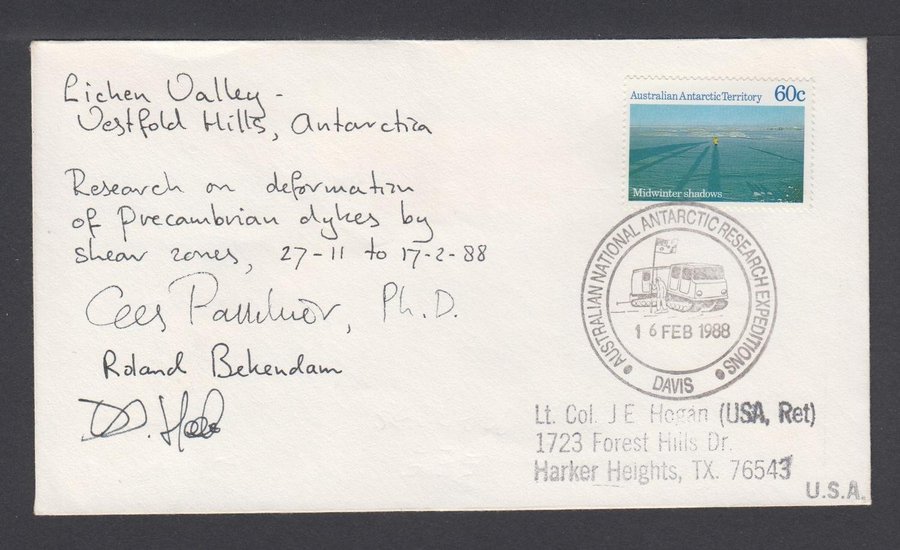 Lichen Valley -
Vestfold Hills, Antarctica
Research on deformation
of Precambrian dykes by
shear zones, 27-11 to 17-2-88
Cees Passchier, Ph.D.
Roland Bekendam
Australian Antarctic Territory 60c
Midwinter shadows
AUSTRALIAN NATIONAL ANTARCTIC RESEARCH EXPEDITIONS
16 FEB 1988
DAVIS
Lt. Col. J E Hogan (USA, Ret)
1723 Forest Hills Dr.
Harker Heights, TX. 76543
U.S.A.